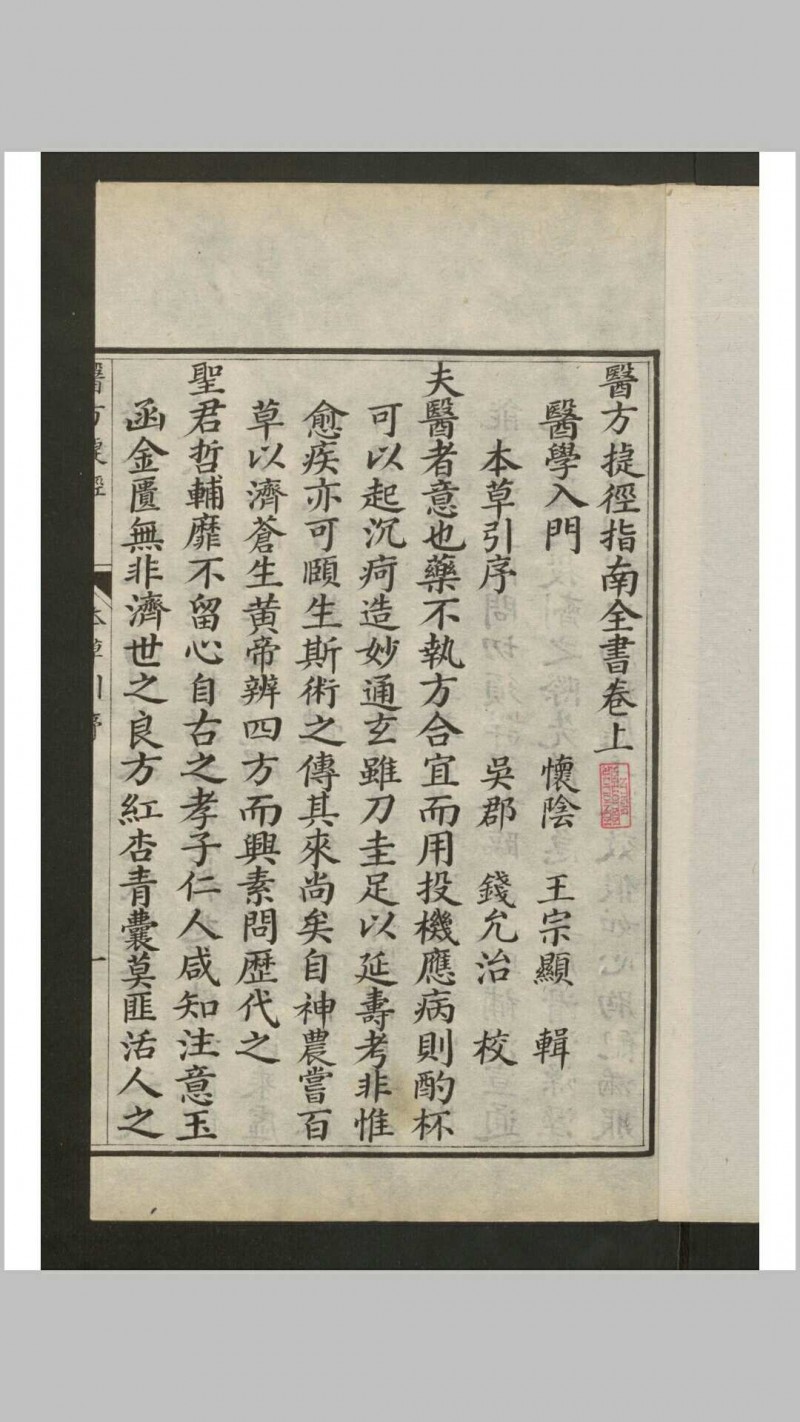 醫方捷徑指南全書卷上
醫學入門　懷陰　王宗顯　輯
本草引序　吳郡　錢允治　校
夫醫者意也藥不執方合宜而用投機應病則酌杯
可以起沉疴造妙通玄雖刀圭足以延壽考非惟
愈疾亦可頤生斯術之傳其來尚矣自神農嘗百
草以濟蒼生黃帝辨四方而興素問歷代之
聖君哲輔靡不留心自古之孝子仁人咸知注意玉
函金匱無非濟世之良方紅杏青囊莫匪活人之
醫方捷徑　本草引序　一